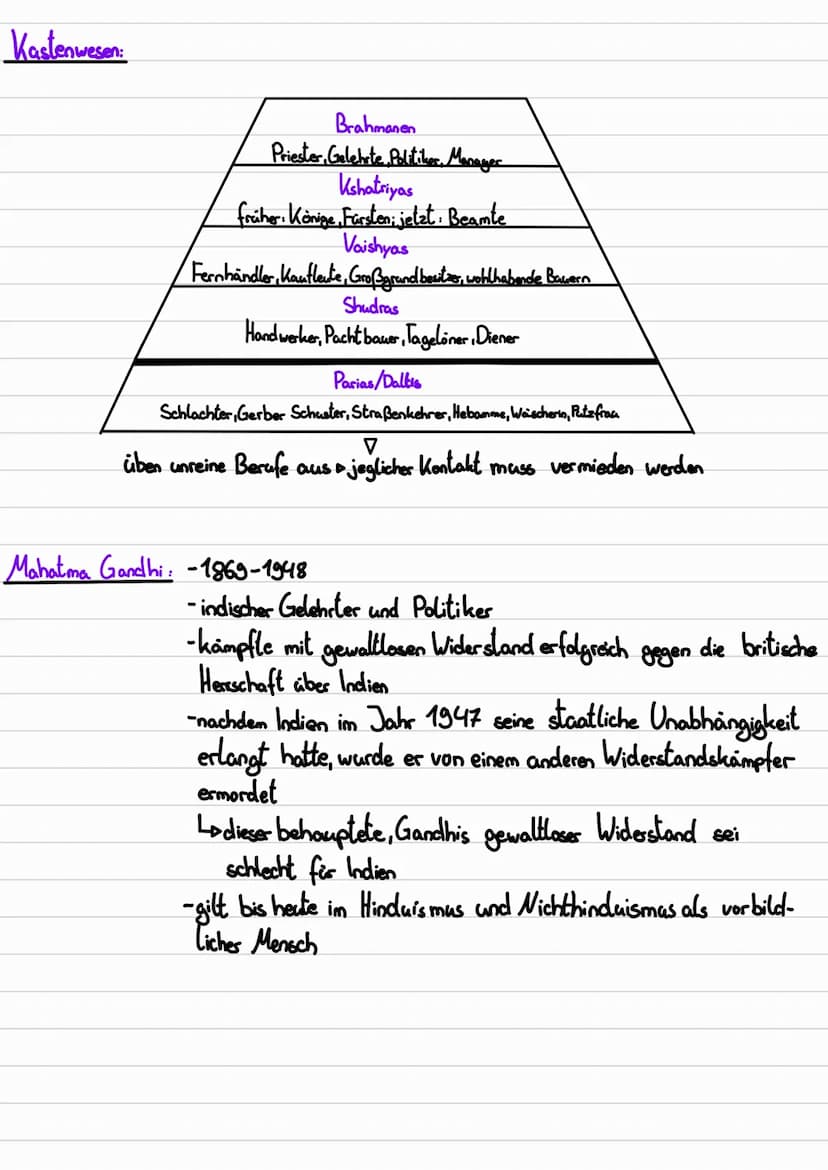 Kastenwesen:
Brahmanen
Priester, Gelehrte, Politiker, Manager
Kshatriyas
früher: Könige, Fürsten; jetzt: Beamte
Vaishyas
Fernhändler, Kaufleute, Großgrundbesitzer, wohlhabende Bauern
Shudras
Handwerker, Pachtbauer, Tagelöner, Diener
Parias/Dalits
Schlachter, Gerber Schuster, Straßenkehrer, Hebamme, Wäscherin, Putzfrau
üben unreine Berufe aus ▹ jeglicher Kontakt muss vermieden werden
Mahatma Gandhi: - 1869-1948
- indischer Gelehrter und Politiker
- kämpfte mit gewaltlosen Widerstand erfolgreich gegen die britische
Herrschaft über Indien
- nachdem Indien im Jahr 1947 seine staatliche Unabhängigkeit
erlangt hatte, wurde er von einem anderen Widerstandskämpfer
ermordet
↳ dieser behauptete, Gandhis gewaltloser Widerstand sei
schlecht für Indien
- gilt bis heute im Hinduismus und Nichthinduismus als vorbild-
licher Mensch